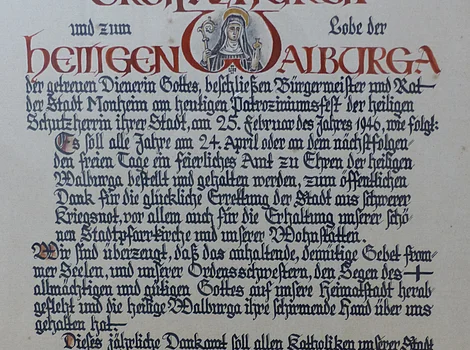 und zum Lobe der
heiligen Walburga
der getreuen Dienerin Gottes, beschließen Bürgermeister und Rat
der Stadt Monheim am heutigen Patroziniumsfest der heiligen
Schutzherrin ihrer Stadt, am 25. Februar des Jahres 1946, wie folgt:
Es soll alle Jahre am 24. April oder an dem nächstfolgen-
den freien Tage ein feierliches Amt zu Ehren der heiligen
Walburga bestellt und gehalten werden, zum öffentlichen
Dank für die glückliche Errettung der Stadt aus schwerer
Kriegsnot, vor allem auch für die Erhaltung unserer schö-
nen Stadtpfarrkirche und unserer Wohnstätten.
Wir sind überzeugt, daß das anhaltende, demütige Gebet from-
mer Seelen, und unserer Ordensschwestern, den Segen des
allmächtigen und gütigen Gottes auf unsere Heimatstadt herab
gefleht und die heilige Walburga ihre schirmende Hand über uns
gehalten hat.
Dieses jährliche Dankamt soll allen Katholiken unserer Stadt